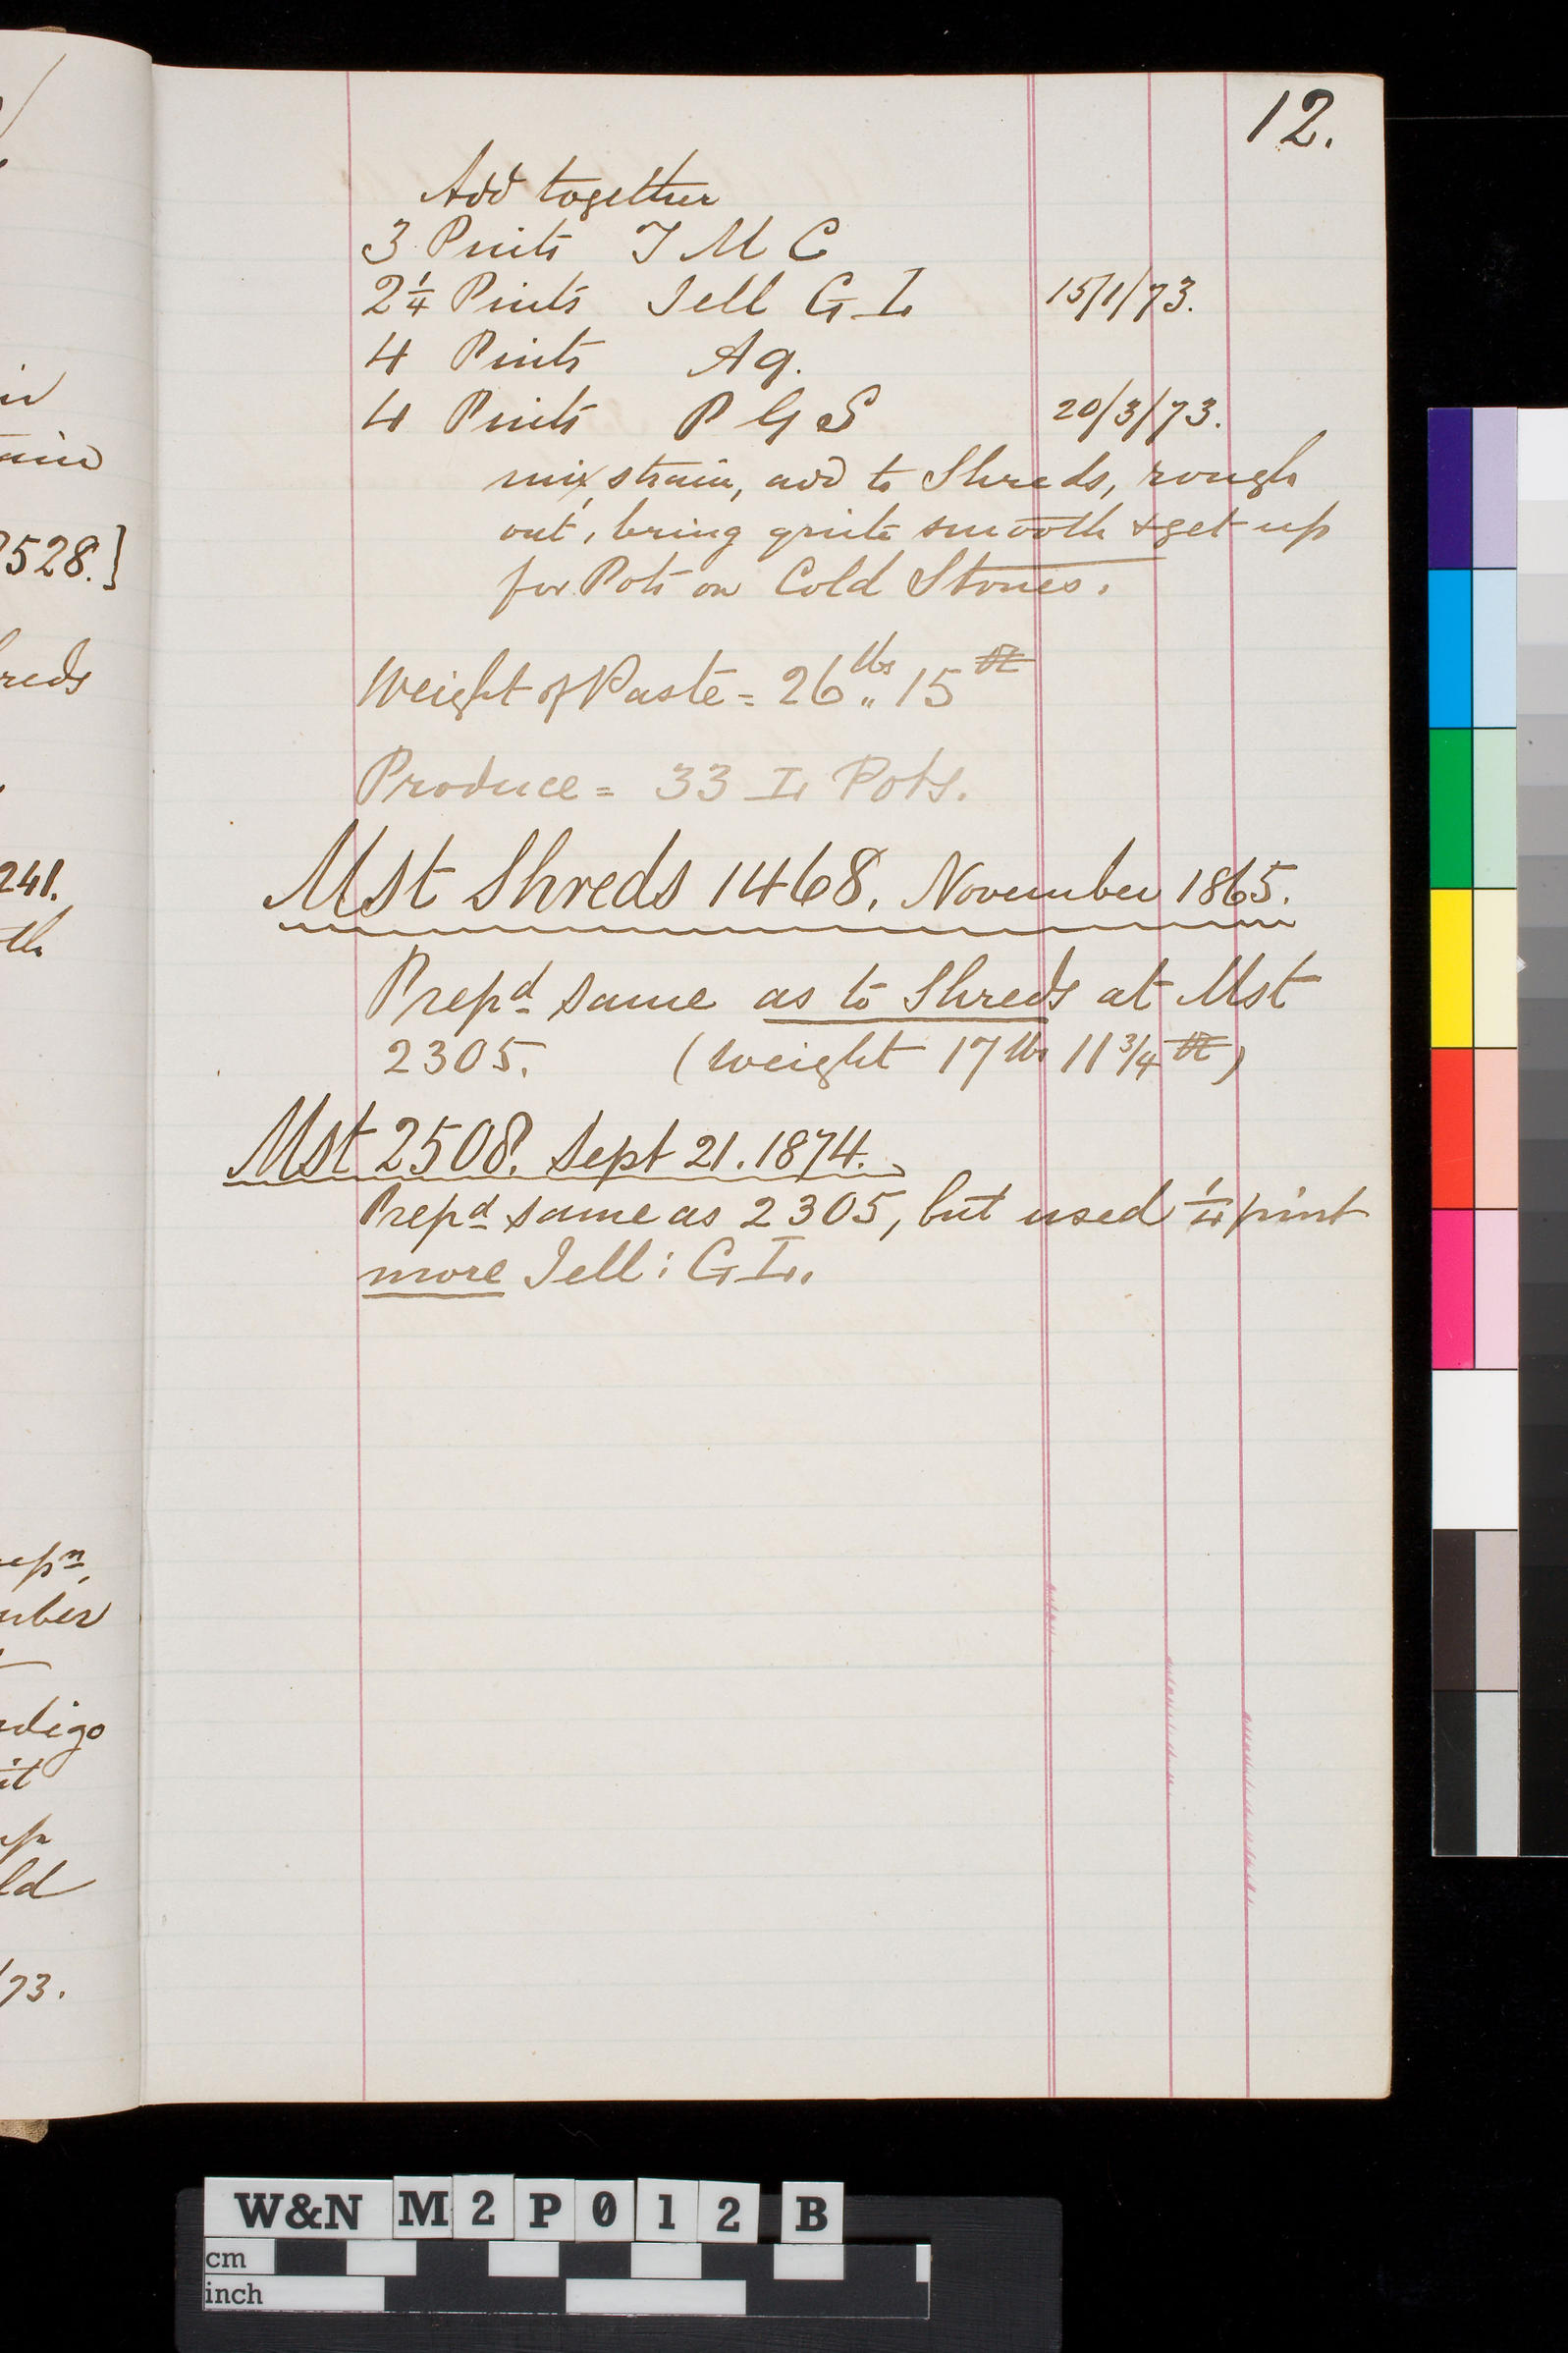 12.
Add together
3 Pints T M C
2 1/4 Pints Jell G L 15/1/73.
4 Pints Aq.
4 Pints P G S 20/3/73.
mix, strain, add to Shreds, rough
out, bring quite smooth & get up
for Pots on Cold Stones.
Weight of Paste = 26 lbs 15
Produce = 33 L Pots.
Mst Shreds 1468. November 1865.
Prepd same as to Shreds at Mst
2305. (weight 17 lbs 11 3/4)
Mst 2508. Sept 21. 1874.
Prepd same as 2305, but used 1/4 pint
more Jell: G L.
528.]
reds
241.
th
epn,
mber
ndigo
it
up
ld
/73.
W&N M2P012 B
cm
inch